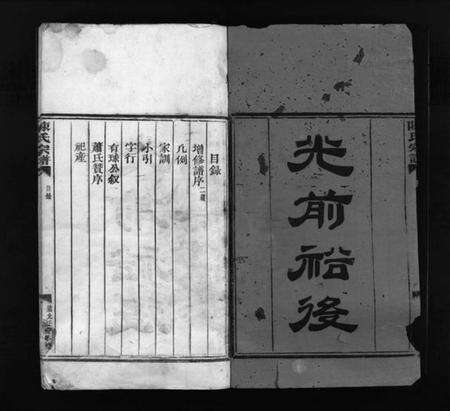 光前裕後
目錄
增修譜序二篇
凡例
家訓
小引
字行
有球公叙
蕭氏贊序
祀產
陳氏宗譜
目錄